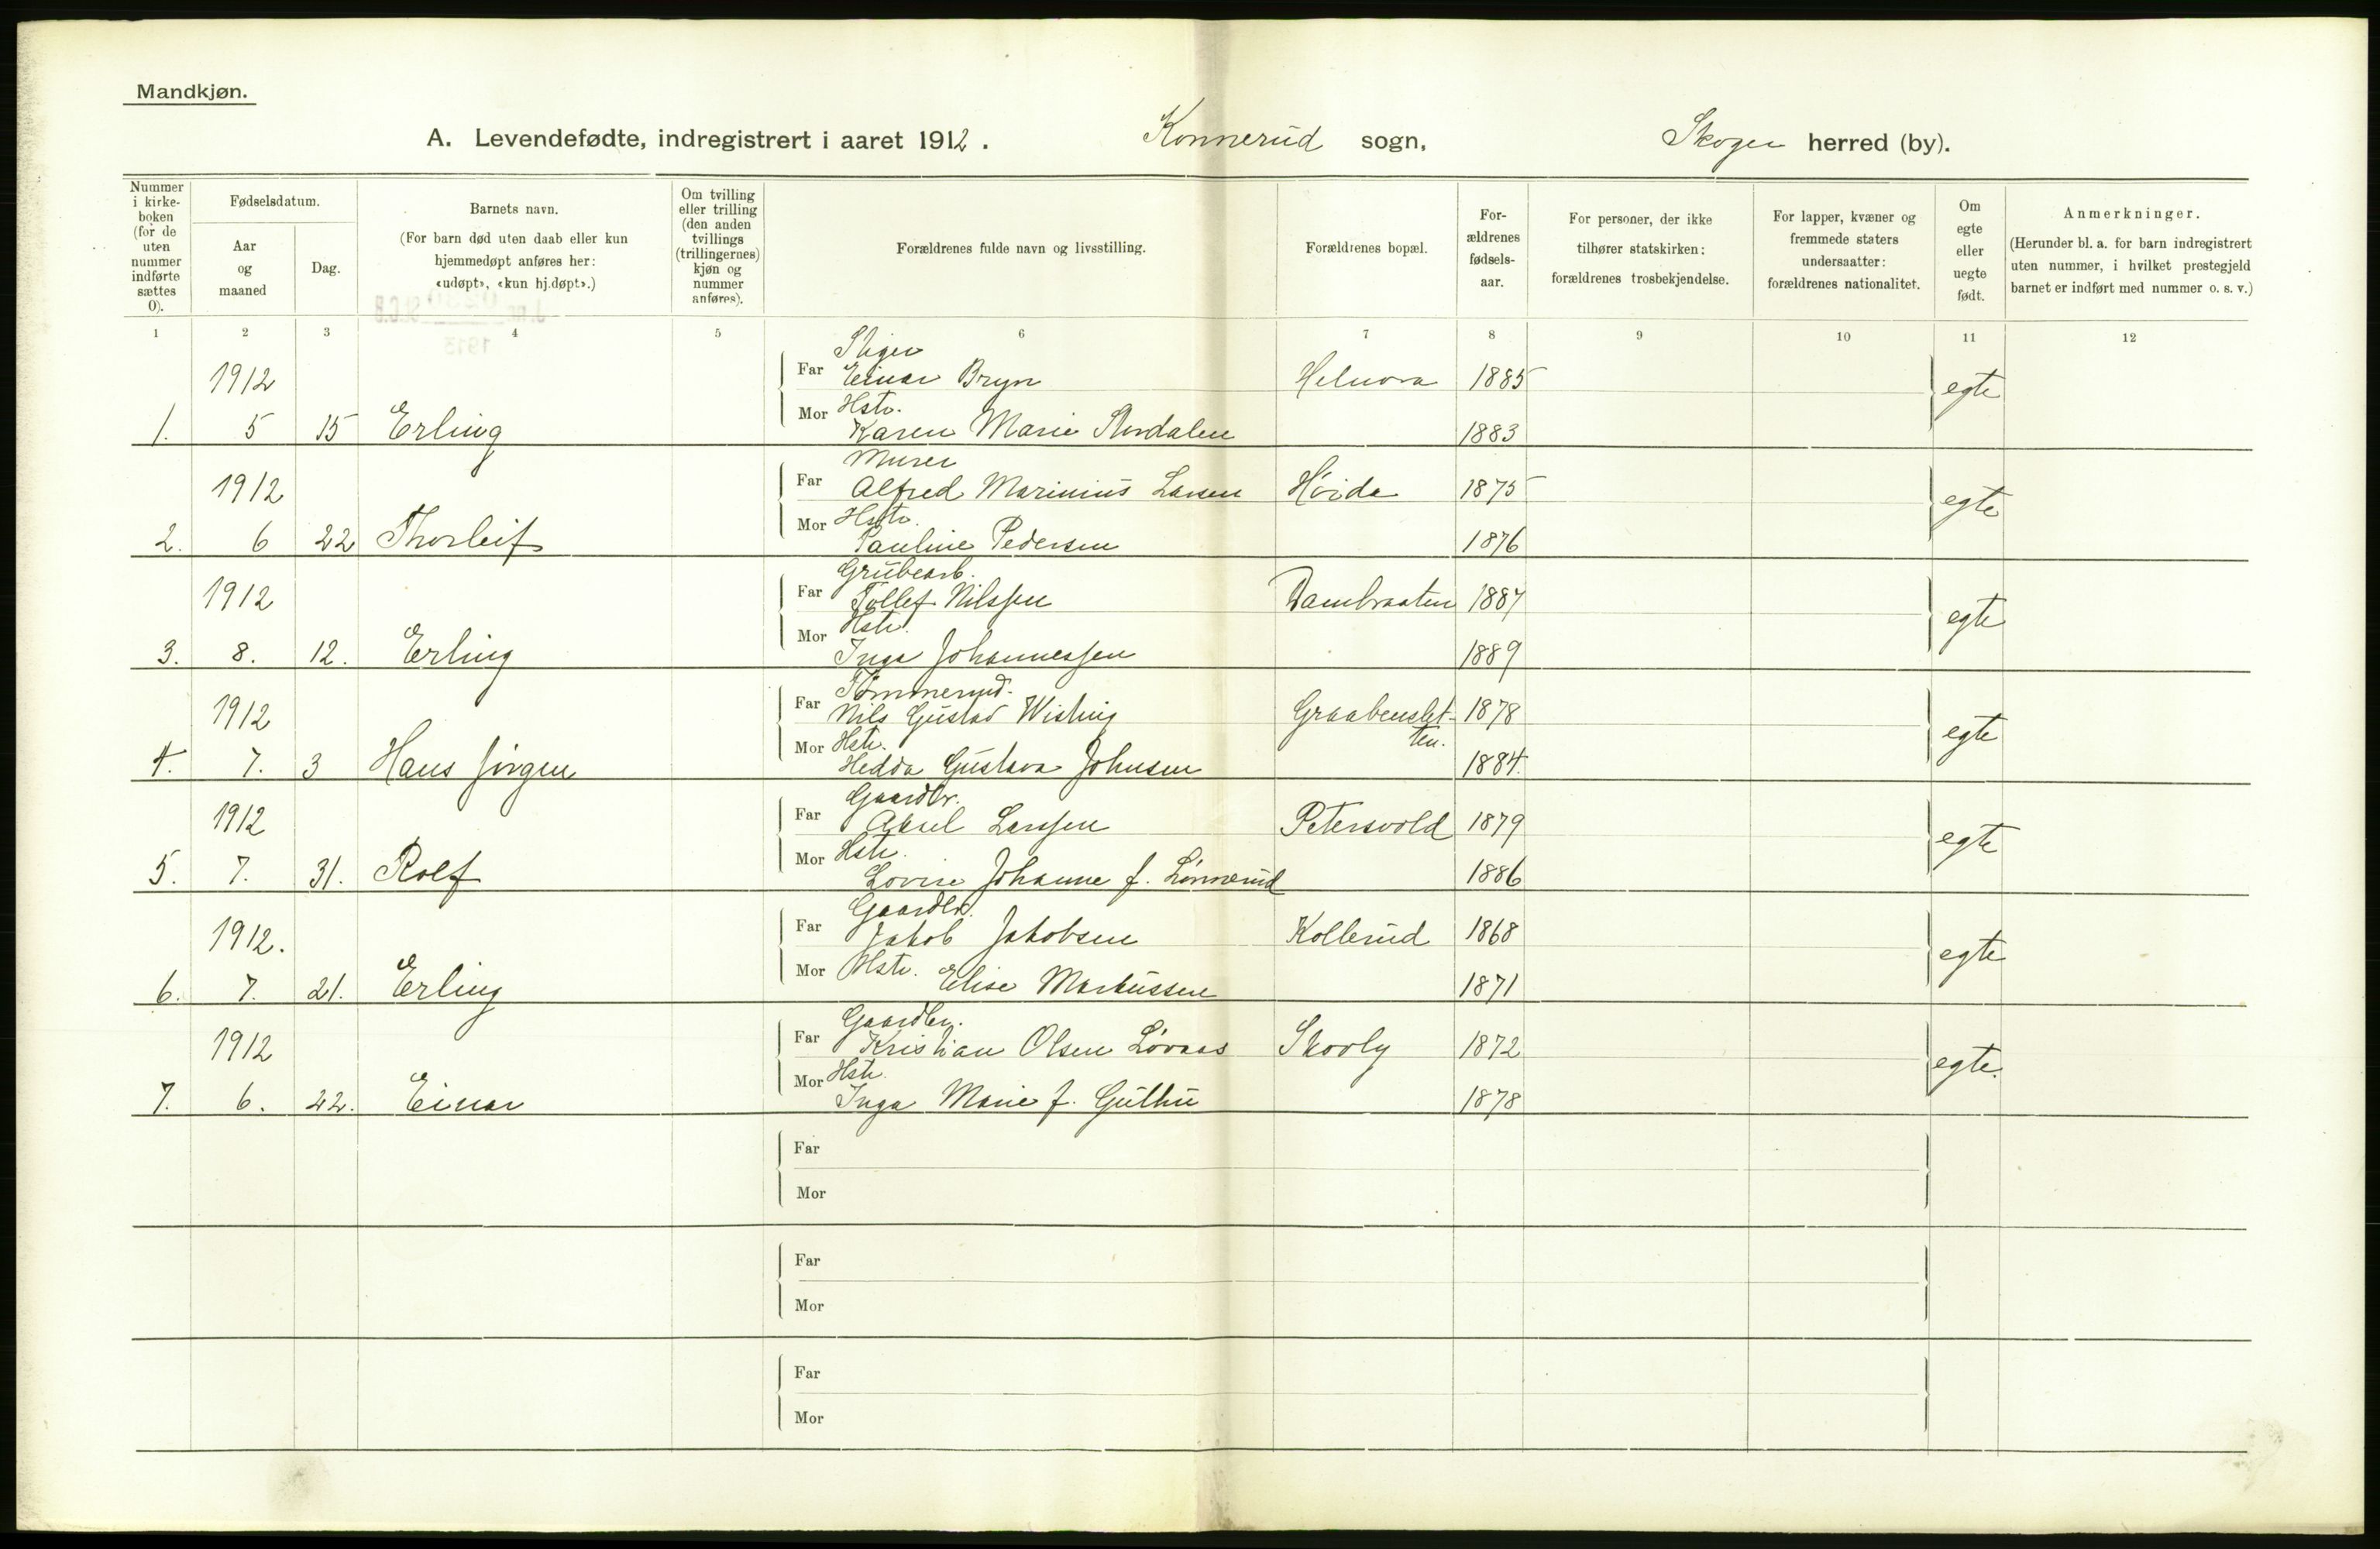 Mandkjøn.
A. Levendefødte, indregistrert i aaret 1912. Konnerud sogn, Skoger herred (by).
Nummer i kirke- boken (for de uten nummer indførte sættes 0).
Fødselsdatum.
Aar og maaned
Dag.
Barnets navn.
(For barn død uten daab eller kun hjemmedøpt anføres her: «udøpt», «kun hj.døpt».)
Om tvilling eller trilling (den anden tvillings (trillingernes) kjøn og nummer anføres).
Forældrenes fulde navn og livsstilling.
Forældrenes bopæl.
For- ældrenes fødsels- aar.
For personer, der ikke tilhører statskirken: forældrenes trosbekjendelse.
For lapper, kvæner og fremmede staters undersaatter: forældrenes nationalitet.
Om egte eller uegte født.
Anmerkninger.
(Herunder bl. a. for barn indregistrert uten nummer, i hvilket prestegjeld barnet er indført med nummer o. s. v.)
1 2 3 4 5 6 7 8 9 10 11 12
Stiger
1912 Far Einar Bryn 1885 egte
Mor Hstr.
1. 5 15 Erling Karen Marie 1883
Murer
1912 Far Alfred Marinius Larsen Höida 1875 egte
Mor Hstr.
2. 6 22 Thorleif Pauline Pedersen 1876
Grubearb.
1912 Far Tollef Nilssen Dambraaten 1887 egte
Mor Hstr.
3. 8. 12. Erling Inga Johannessen 1889
Tömmermd.
1912 Far Nils Gustav Wisting Graabenslet- 1878 egte
Mor Hstr. ten.
4. 7. 3 Hans Jörgen Hedda Gustava Johnsen 1884.
Gaardbr.
1912 Far Aksel Larssen Petersvold 1879 egte
Mor Hstr.
5. 7. 31. Rolf Lovise Johanne f. 1886
Gaardbr.
1912. Far Jakob Jakobsen Kollerud 1868 egte
Mor Hstr.
6. 7. 21. Erling Elise Markussen 1871
Gaardbr.
1912 Far Kristian Olsen Lövaas Skovly 1872 egte.
Mor Hstr.
7. 6. 22. Einar Inga Marie f. Gulhu 1878
Far
Mor
Far
Mor
Far
Mor